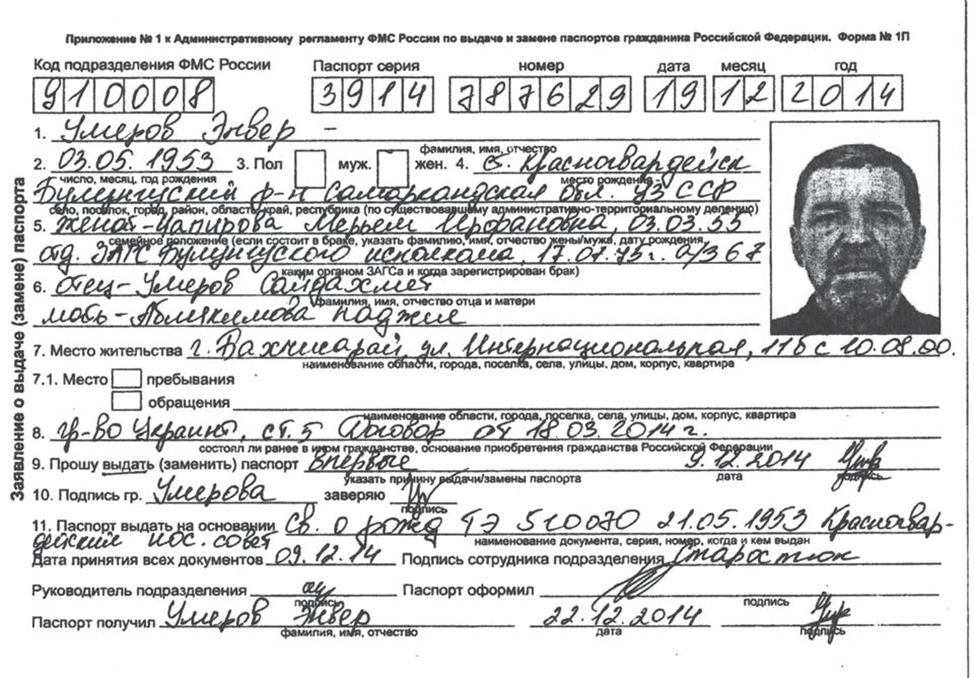 Приложение № 1 к Административному регламенту ФМС России по выдаче и замене паспортов гражданина Российской Федерации. Форма № 1П
Код подразделения ФМС России Паспорт серия номер дата месяц год
910008 3914 787629 19 12 2014
1. Умеров Энвер –
фамилия, имя, отчество
2. 03.05.1953 3. Пол муж. жен. 4. с. Красногвардейск
число, месяц, год рождения место рождения -
Булунгурский р-н Самаркандская обл. Уз ССР
село, поселок, город, район, область, край, республика (по существовавшему административно-территориальному делению)
5. женат - Мерьем Ирфановна, 03.03.55
семейное положение (если состоит в браке, указать фамилию, имя, отчество жены/мужа, дату рождения,
отд. ЗАГС Булунгурского исполкома, 17.07.75 г. а/з 67
каким органом ЗАГСа и когда зарегистрирован брак)
6. отец - Умеров Сайдахмет
фамилия, имя, отчество отца и матери
мать - Аблякимова Наджие
7. Место жительства г. Бахчисарай, ул. Интернациональная, 11б с 10.08.00.
наименование области, города, поселка, села, улицы, дом, корпус, квартира
7.1. Место пребывания
обращения
наименование области, города, поселка, села, улицы, дом, корпус, квартира
8. гр-во Украины, ст. 5 Договор от 18.03.2014 г.
состоял ли ранее в ином гражданстве, основание приобретения гражданства Российской Федерации
9. Прошу выдать (заменить) паспорт впервые 9.12.2014
указать причину выдачи/замены паспорта дата подпись
10. Подпись гр. Умерова заверяю
подпись
11. Паспорт выдать на основании Св. о рожд ТЭ 510070 21.05.1953 Красногвар-
дейский пос. совет наименование документа, серия, номер, когда и кем выдан
Дата принятия всех документов 09.12.14 Подпись сотрудника подразделения Старостюк
Руководитель подразделения Паспорт оформил
подпись подпись
Паспорт получил Умеров Энвер 22.12.2014
фамилия, имя, отчество дата подпись
Заявление о выдаче (замене) паспорта